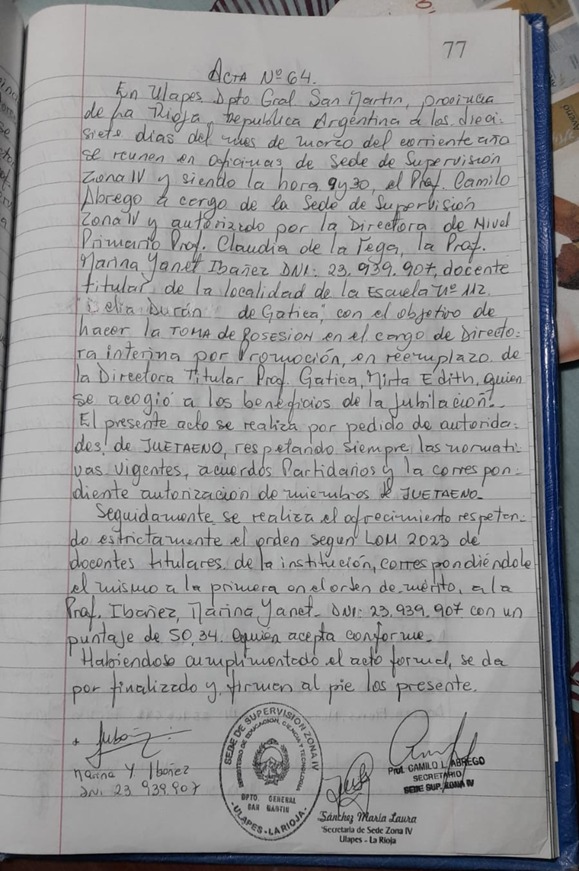 77
ACTA Nº 64.
En Ulapes Dpto Gral San Martin, provincia
de La Rioja, Republica Argentina a los dieci-
siete dias del mes de marzo del corriente año
se reunen en oficinas de Sede de Supervisión
Zona IV y siendo la hora 9y30, el Prof. Camilo
Abrego a cargo de la Sede de Supervisión
Zona IV y autorizado por la Directora de Nivel
Primario Prof. Claudia de la Fega, la Prof.
Marina Yanet Ibañez DNI: 23.939.907, docente
titular de la localidad de la Escuela Nº 112
"Delia Durán de Gatica", con el objetivo de
hacer la TOMA de POSESION en el cargo de Directo-
ra interina por Promoción, en reemplazo de
la Directora Titular Prof. Gatica, Mirta Edith, quien
se acogió a los beneficios de la Jubilación.-
El presente acto se realiza por pedido de autorida-
des de JUETAENO, respetando siempre las normati-
vas vigentes, acuerdos Partidarios y la corres pon-
diente autorización de miembros de JUETAENO.-
Seguidamente se realiza el ofrecimiento respetan-
do estrictamente el orden segun LOM 2023 de
docentes titulares de la institución, correspondiéndole
el mismo a la primera en el orden de mérito, a la
Prof. Ibañez, Marina Yanet- DNI: 23.939.907 con un
puntaje de 50,34. Quien acepta conforme.-
Habiendose cumplimentado el acto formal, se da
por finalizado y firman al pie los presente.
Marina Y. Ibañez
DNI. 23 939.907
SEDE DE SUPERVISIÓN ZONA IV
MINISTERIO DE EDUCACIÓN, CIENCIA Y TECNOLOGÍA
DPTO. GENERAL
SAN MARTIN
-ULAPES-LA RIOJA-
Sánchez María Laura
Secretaria de Sede Zona IV
Ulapes - La Rioja
Prof. CAMILO L. ABREGO
SECRETARIO
SEDE SUP. ZONA IV